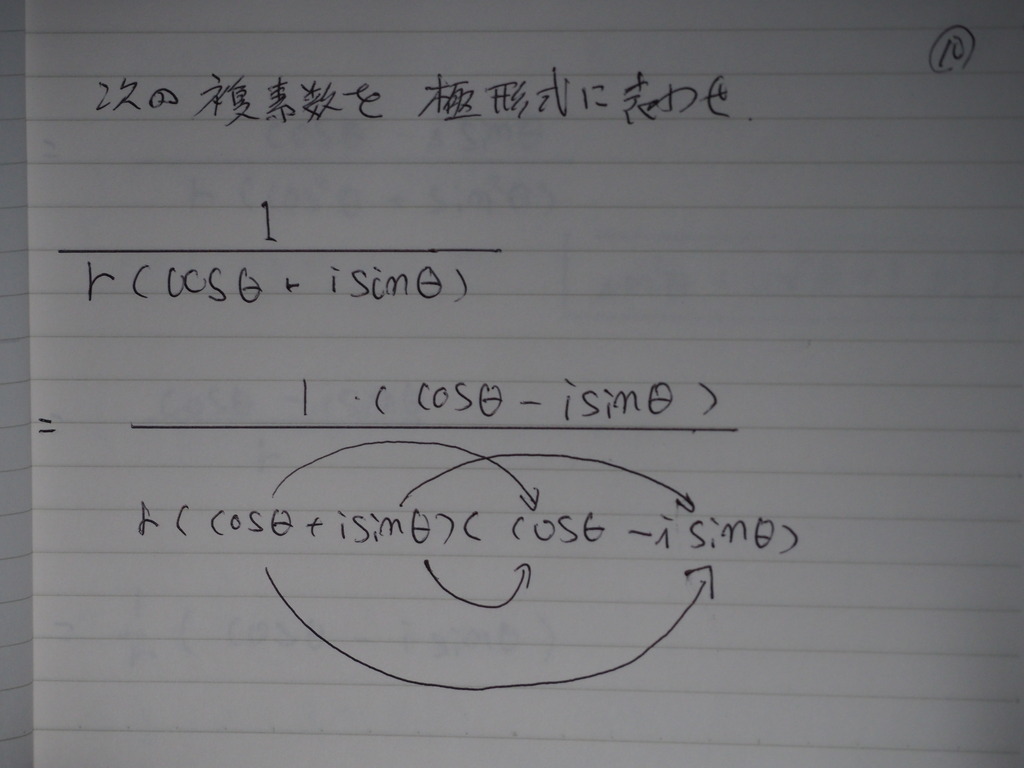 ⑩
次の複素数を 極形式に表わせ.
1
r(cosθ+isinθ)
= 1・(cosθ-isinθ)
r(cosθ+isinθ)(cosθ-isinθ)